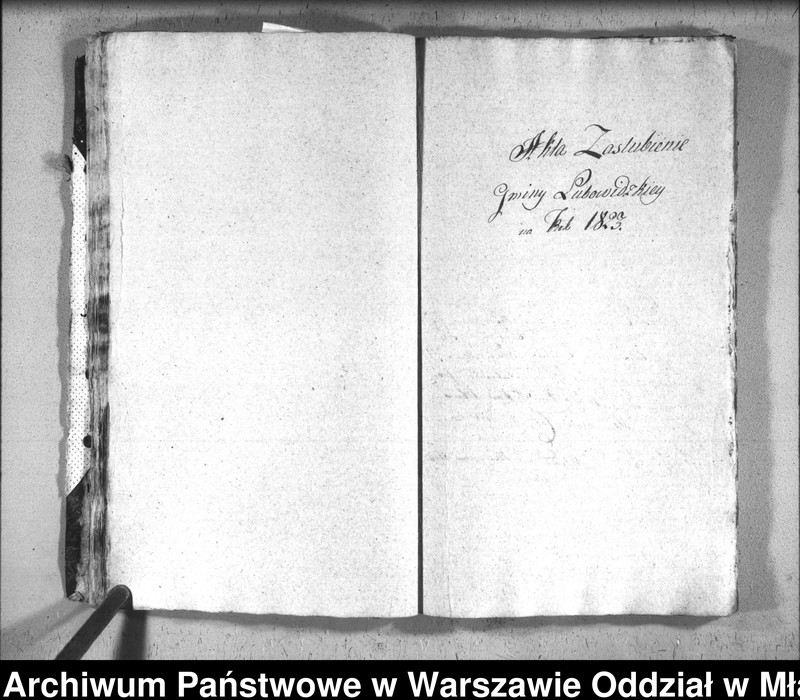 Akta Zaslubienie
Gminy Lubowidzkiey
na Rok 1823.
Archiwum Państwowe w Warszawie Oddział w Mł